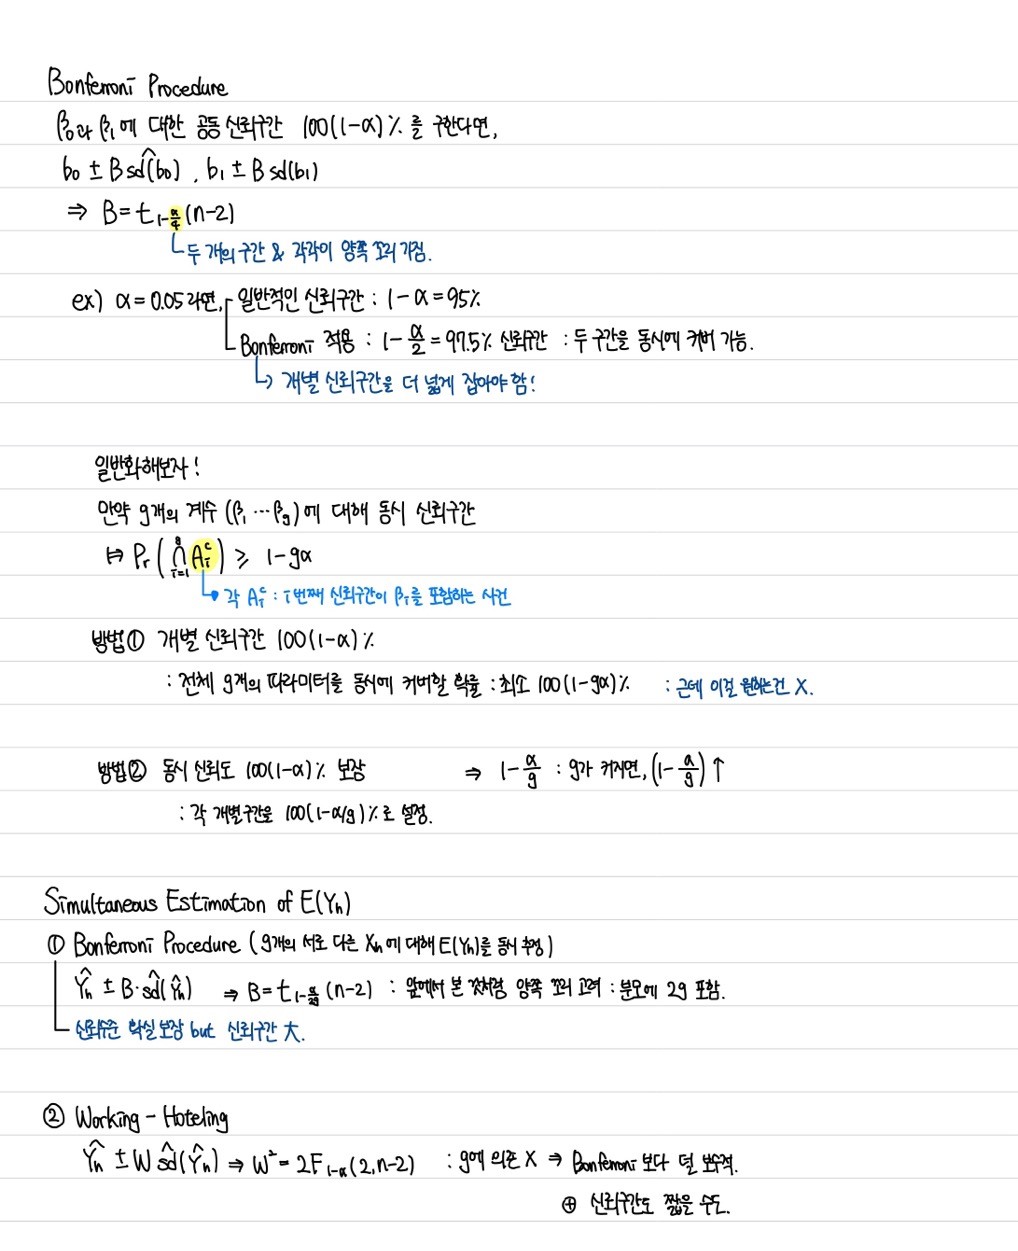 Bonferroni Procedure
β₀와 β₁에 대한 공동 신뢰구간 100(1-α)%를 구한다면,
b₀ ± B sd̂(b₀), b₁ ± B sd(b₁)
⇒ B = t₁₋α/₄(n-2)
두 개의 구간 & 각각이 양쪽 꼬리 가짐.
ex) α = 0.05라면, 일반적인 신뢰구간 : 1-α = 95%
Bonferroni 적용 : 1-α/2 = 97.5% 신뢰구간 : 두 구간을 동시에 커버 가능.
↳ 개별 신뢰구간을 더 넓게 잡아야 함!
일반화해보자!
만약 g개의 계수 (β₁ ⋯ βg)에 대해 동시 신뢰구간
↦ Pr(⋂ᵢ₌₁ᵍ Aᵢᶜ) ≥ 1-gα
각 Aᵢᶜ : i번째 신뢰구간이 βᵢ를 포함하는 사건
방법① 개별 신뢰구간 100(1-α)%
: 전체 g개의 파라미터를 동시에 커버할 확률 : 최소 100(1-gα)% : 근데 이걸 원하는건 X.
방법② 동시 신뢰도 100(1-α)% 보장 ⇒ 1-α/g : g가 커지면, (1-α/g) ↑
: 각 개별구간을 100(1-α/g)%로 설정.
Simultaneous Estimation of E(Yh)
① Bonferroni Procedure (g개의 서로 다른 Xh에 대해 E(Yh)를 동시 추정)
Ŷh ± B·sd̂(Ŷh) ⇒ B = t₁₋α/₂g(n-2) : 앞에서 본 것처럼 양쪽 꼬리 고려 : 분모에 2g 포함.
신뢰수준 확실 보장 but 신뢰구간 大.
② Working - Hoteling
Ŷh ± W sd̂(Ŷh) ⇒ W² = 2F₁₋α(2, n-2) : g에 의존 X ⇒ Bonferroni 보다 덜 보수적.
⊕ 신뢰구간도 짧을 수도.